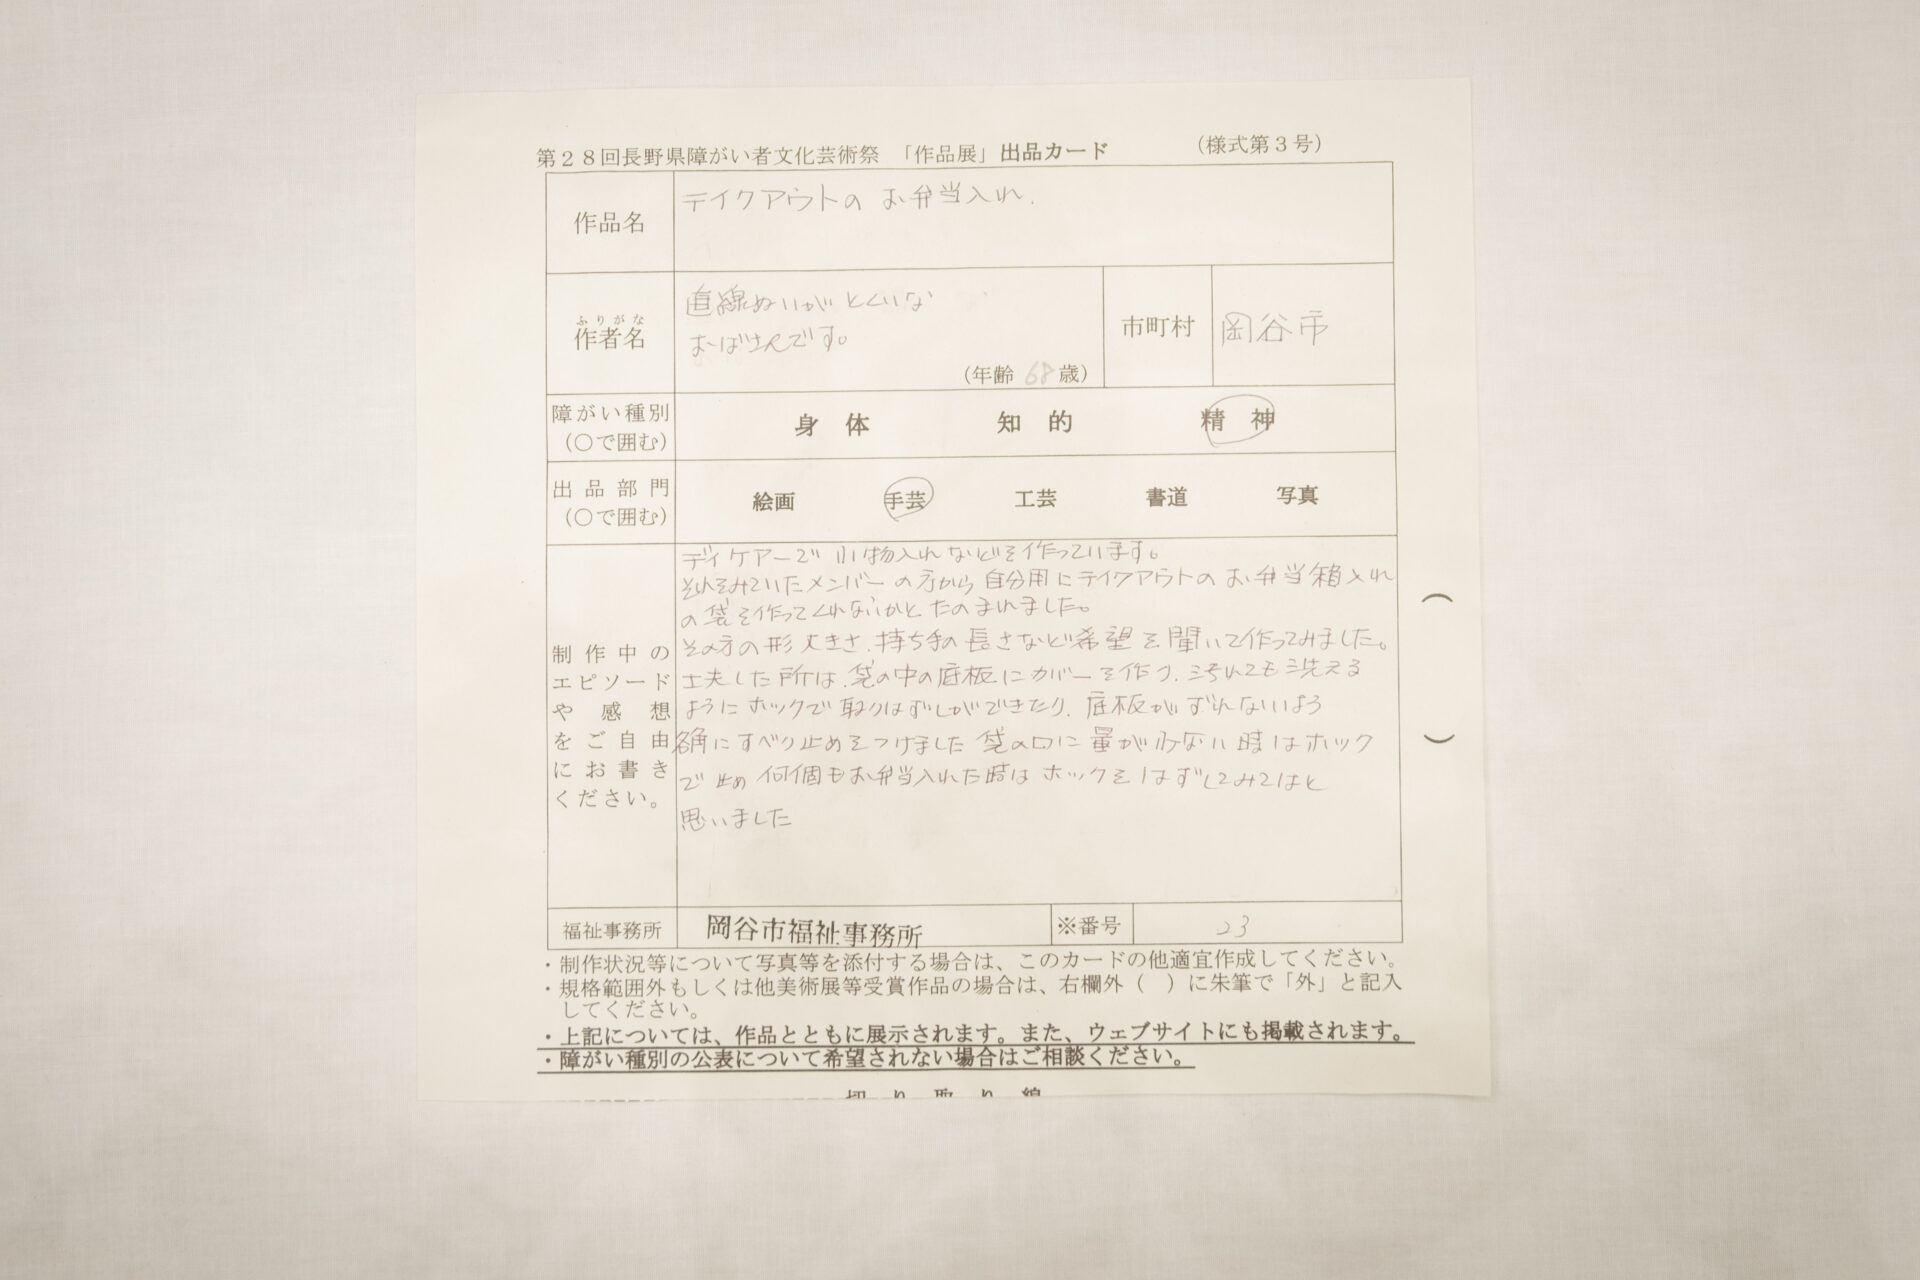 第28回長野県障がい者文化芸術祭 「作品展」出品カード (様式第3号)
作品名
テイクアウトの お弁当入れ.
ふりがな
作者名
直線ぬいがとくいな
おばさんです。
(年齢 68 歳)
市町村
岡谷市
障がい種別
(○で囲む)
身体 知的 精神
出品部門
(○で囲む)
絵画 手芸 工芸 書道 写真
制作中の
エピソード
や感想
をご自由
にお書き
ください。
デイケアーで小物入れなどを作っています。
それをみていたメンバーの方から自分用にテイクアウトのお弁当箱入れ
の袋を作ってくれないかとたのまれました。
その方の形 大きさ、持ち手の長さなど希望を聞いて作ってみました。
工夫した所は、袋の中の底板にカバーを作り、汚れても洗える
ようにホックで取りはずしができたり、底板がずれないよう
角にすべり止めをつけました 袋の口に量が少ない時はホック
で止め 何個もお弁当入れた時はホックをはずしてみてはと
思いました
( )
福祉事務所
岡谷市福祉事務所
※番号
23
・制作状況等について写真等を添付する場合は、このカードの他適宜作成してください。
・規格範囲外もしくは他美術展等受賞作品の場合は、右欄外( )に朱筆で「外」と記入
してください。
・上記については、作品とともに展示されます。また、ウェブサイトにも掲載されます。
・障がい種別の公表について希望されない場合はご相談ください。
切り取り線